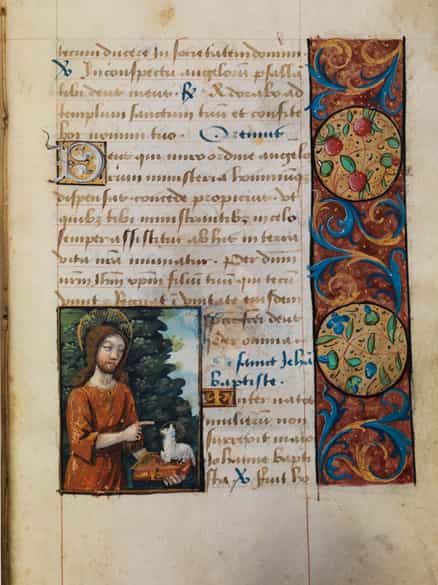 tecum ducere in societatem domum.
V̷ In conspectu angeloru psallā
tibi deus meus. R̷ Adorabo ad
templum sanctum tuū et confite
bor nomini tuo. Oremus
Deus qui miro ordine angelo
rum ministeria hominūqz
dispensas concede propicius. vt
quibz tibi ministrātibz in celo
semper assistitur ab his in terra
vita nrā muniatur. Per dnm
nrm̄ Ihm xpm̄ filiū tuū qui tecū
viuit et Regnat ī vnitate eiusdem
per omnia
sanct Jehā
baptiste.
Inter natos
mulierū non
surrexit maior
Johanne bapti
sta V̷ Fuit ho